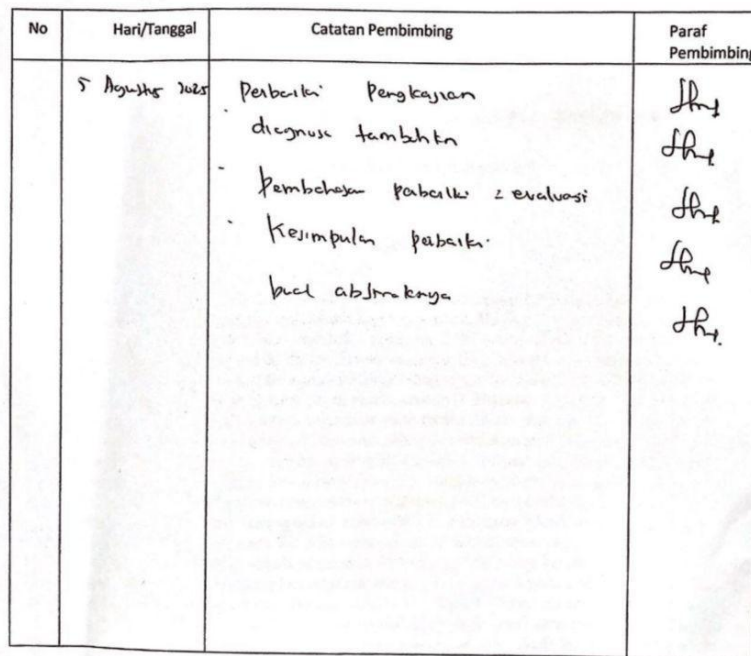 No Hari/Tanggal Catatan Pembimbing Paraf
Pembimbing
5 Agustus 2025 Perbaiki Pengkajian
diagnosa tambahkn
Pembahasan perbaiki 2 evaluasi
Kesimpulan perbaiki
buat abstraknya